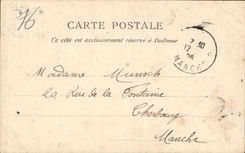 16
CARTE POSTALE
Ce côté est exclusivement réservé à l'adresse
7 30
12
06
MANCHE
Madame Munsch
20 Rue de la Fontaine
Cherbourg
Manche